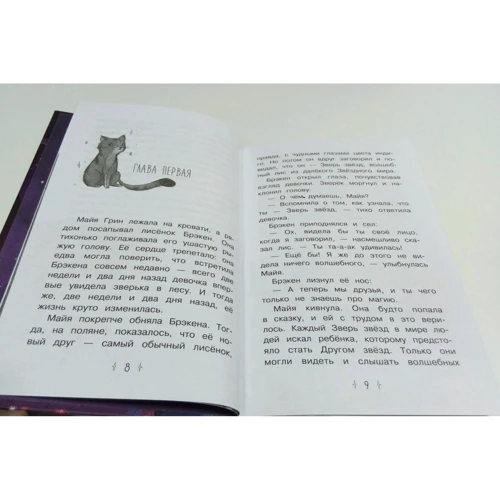 ГЛАВА ПЕРВАЯ
Майя Грин лежала на кровати, а ря-
дом посапывал лисёнок Брэкен. Она
тихонько поглаживала его ушастую ры-
жую голову. Её сердце трепетало: она
едва могла поверить, что встретила
Брэкена совсем недавно — всего две
недели и два дня назад девочка впер-
вые увидела зверька в лесу. И тогда
же, две недели и два дня назад, её
жизнь круто изменилась.
Майя покрепче обняла Брэкена. Тог-
да, на поляне, показалось, что её но-
вый друг — самый обычный лисёнок,
8
правда, с чудными глазами цвета инди-
го. Но потом он вдруг заговорил и по-
ведал, что он — Зверь звёзд, волшеб-
ный лис из далёкого Звёздного мира.
Брэкен открыл глаза, почувствовав
взгляд девочки. Зверёк моргнул и на-
клонил голову.
— О чём думаешь, Майя?
— Вспомнила о том, как узнала, что
ты — Зверь звёзд, — тихо ответила
девочка.
Брэкен приподнялся и сел:
— Ох, видела бы ты своё лицо,
когда я заговорил, — насмешливо ска-
зал лис. — Ты та-а-ак удивилась!
— Ещё бы! Я же до этого не ви-
дела ничего волшебного, — улыбнулась
Майя.
Брэкен лизнул её нос:
— А теперь мы друзья, и ты чего
только не знаешь про магию.
Майя кивнула. Она будто попала
в сказку, и ей с трудом в это вери-
лось. Каждый Зверь звёзд в мире лю-
дей искал ребёнка, которому предсто-
яло стать Другом звёзд. Только они
могли видеть и слышать волшебных
9